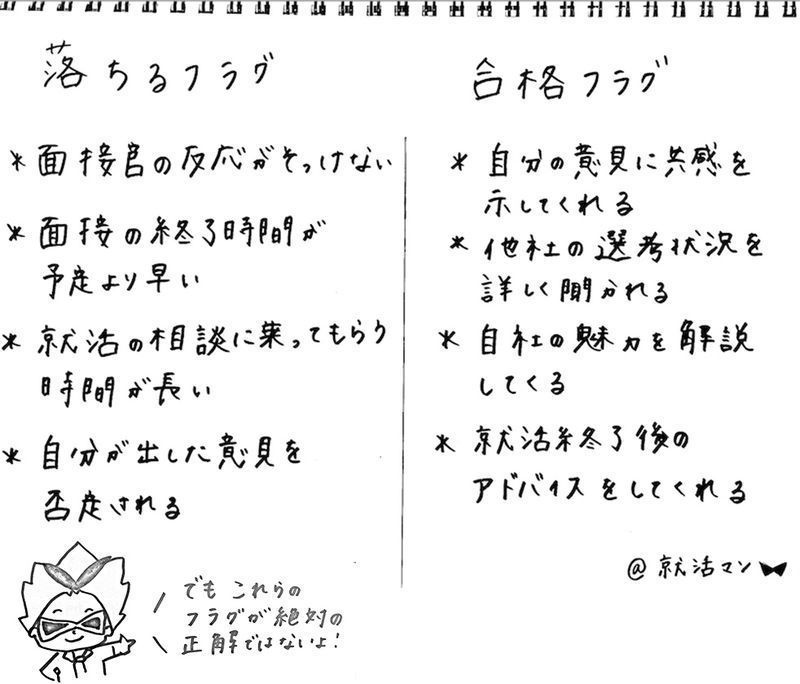 落ちるフラグ
* 面接官の反応がそっけない
* 面接の終了時間が
予定より早い
* 就活の相談に乗ってもらう
時間が長い
* 自分が出した意見を
否定される
合格フラグ
* 自分の意見に共感を
示してくれる
* 他社の選考状況を
詳しく聞かれる
* 自社の魅力を解説
してくる
* 就活終了後の
アドバイスをしてくれる
@就活マン
でもこれらの
フラグが絶対の
正解ではないよ！